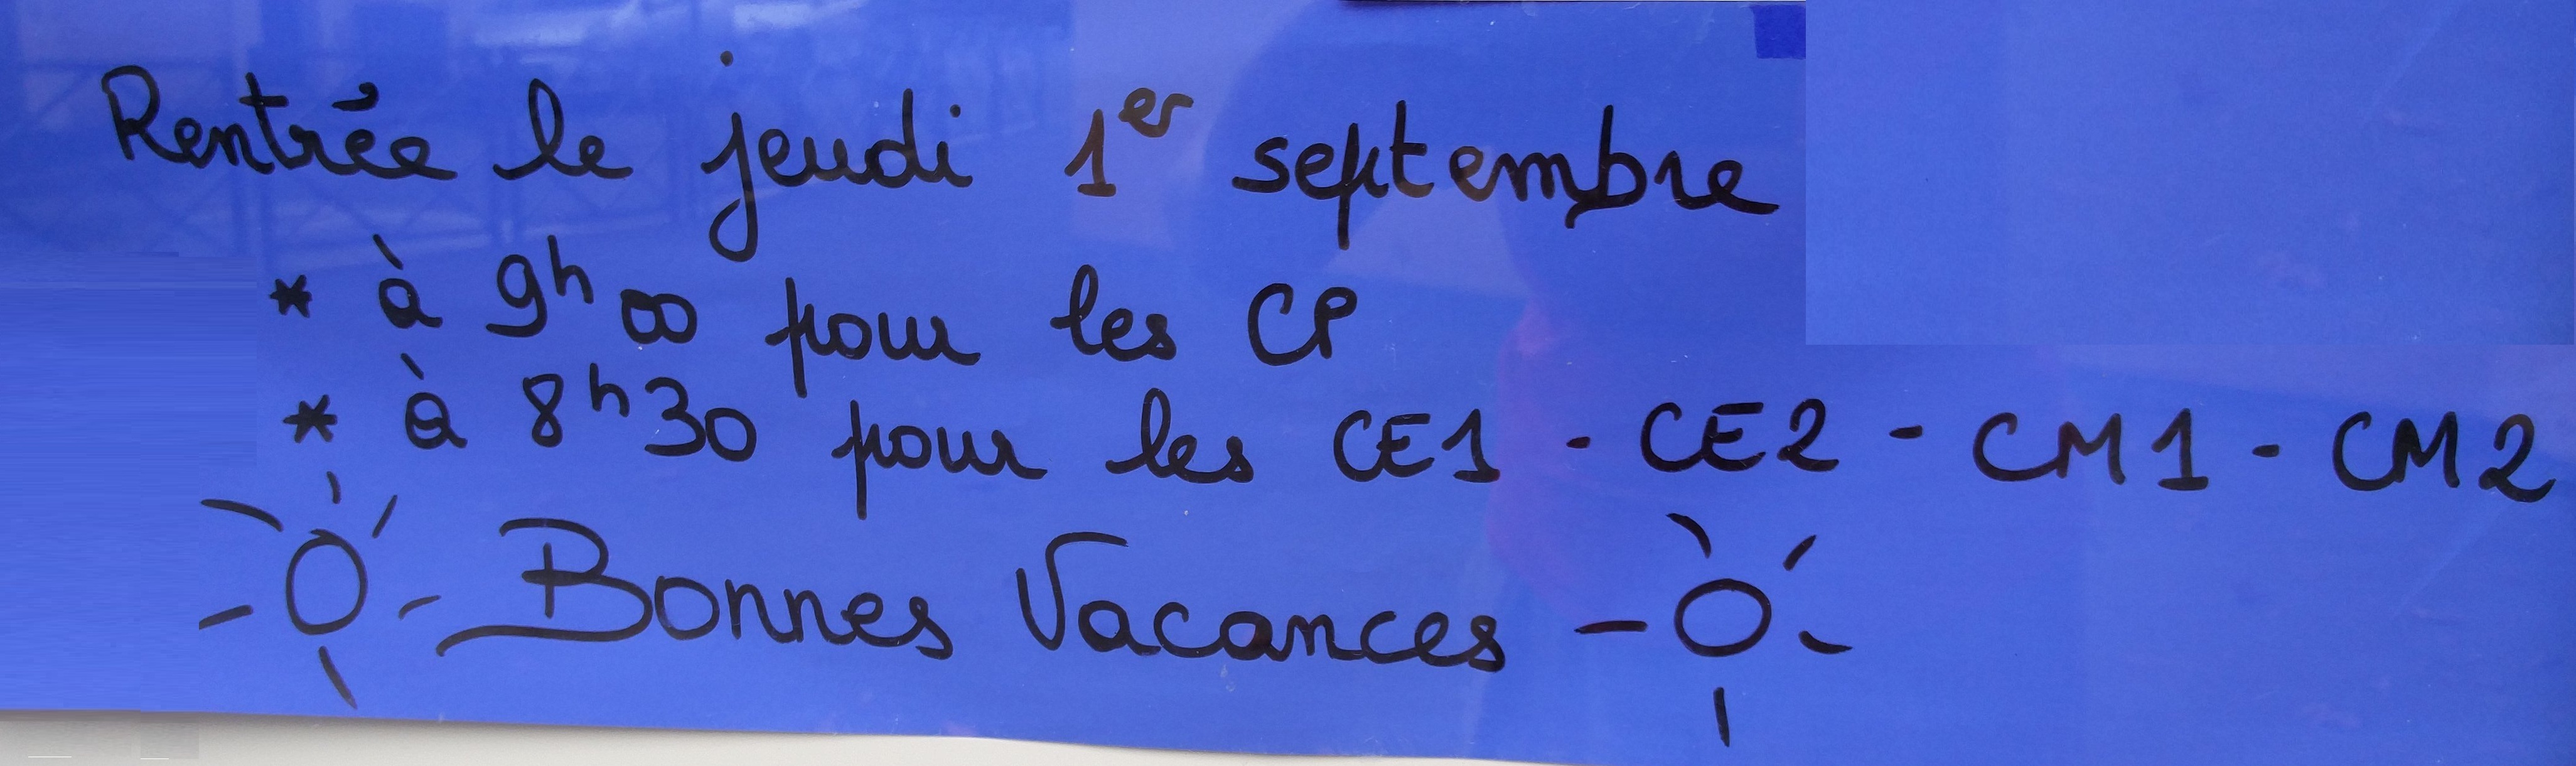 Rentrée le jeudi 1er septembre
* à 9h00 pour les CP
* à 8h30 pour les CE1 - CE2 - CM1 - CM2
Bonnes Vacances